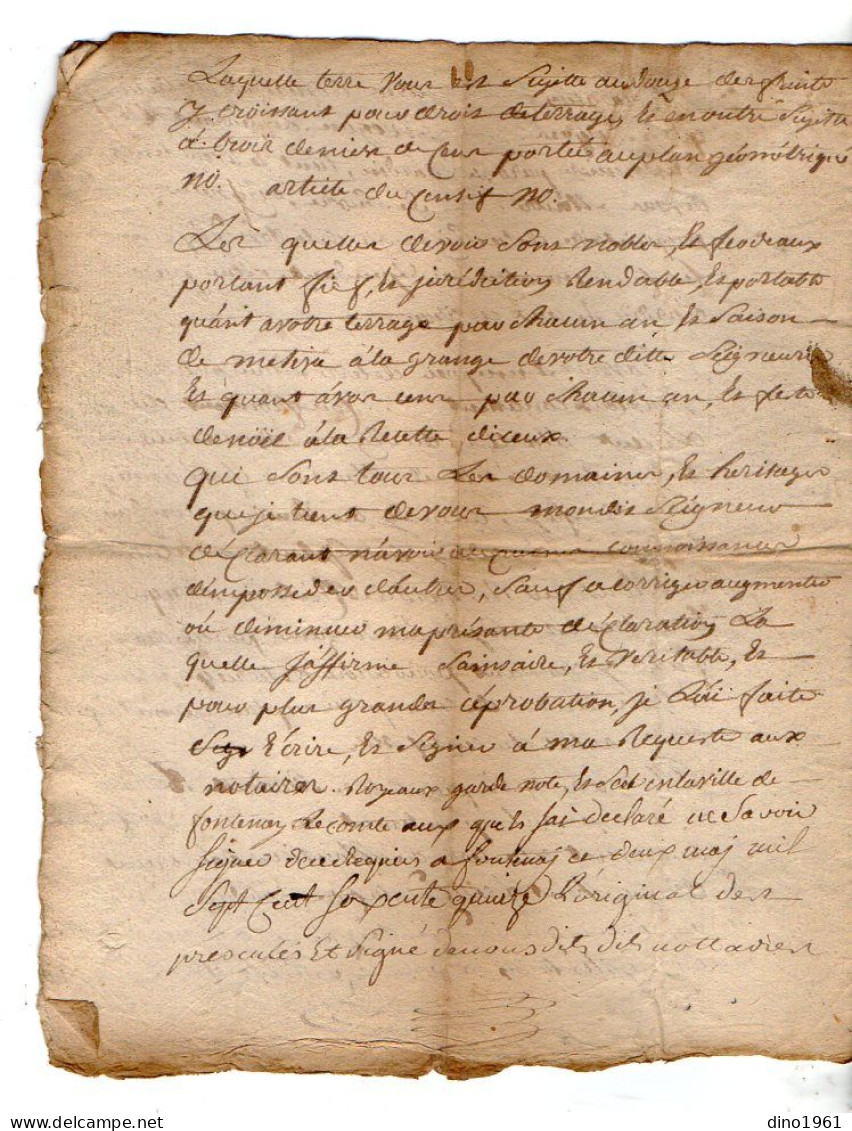 Laquelle terre vous est sujette audouze des fruits
y croissant pour droit deterrage, Et enoutre sujette
à trois deniers de Cens portée auplan géométrique
no. article du Censif no.
Les quelles devoirs sont nobles, Et feodeaux
portant fief, Et jurédiction Rendable, Et portable
quánt avotre terrage par chacun an Et Saison
de metive à la grange devotre ditte Seigneurie
Et quant avos cens par chacun an, Et feste
denoël à la Recette diceux.
qui sont tous Les domaines, Et heritages
que je tient devous mondit Seigneur
déclarant návoir aucune connoissance
dempossedes dáutres, Sauf a corriger augmenter
où diminuer ma présante déclaration La
quelle jáffirme Sainsaire, Et veritable, Et
pour plus grandes éprobation, je Láÿ faite
Sig Ecrire, Et Signer à ma Requeste aux
notaires Royeaux garde note, Et Scel enlaville de
fontenay Lecomte aux quels jai declaré ne Savoir
Signer decerequis a fontenaj ce deux maj mil
Sept Cent soixente quinze Loriginal des
presantes Et Signé denous dits dits nottaires
dino1961